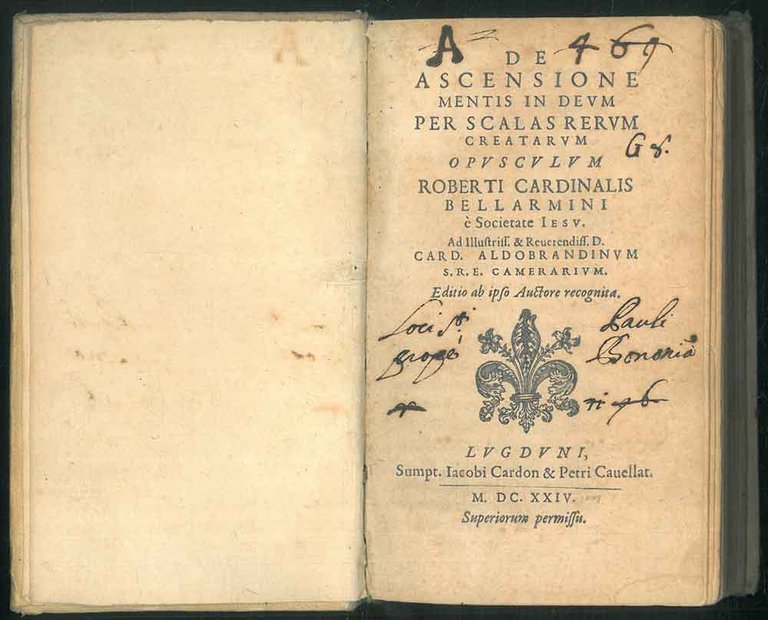 A 469
DE
ASCENSIONE
MENTIS IN DEVM
PER SCALAS RERVM
CREATARVM
G 8.
OPVSCVLVM
ROBERTI CARDINALIS
BELLARMINI
è Societate IESV.
Ad Illuſtriſſ. & Reuerendiſſ. D.
CARD. ALDOBRANDINVM
S. R. E. CAMERARIVM.
Editio ab ipſo Auctore recognita.
Loci Sti Pauli
prope Bononia
LVGDVNI,
Sumpt. Iacobi Cardon & Petri Cauellat.
M. DC. XXIV.
Superiorum permiſſu.